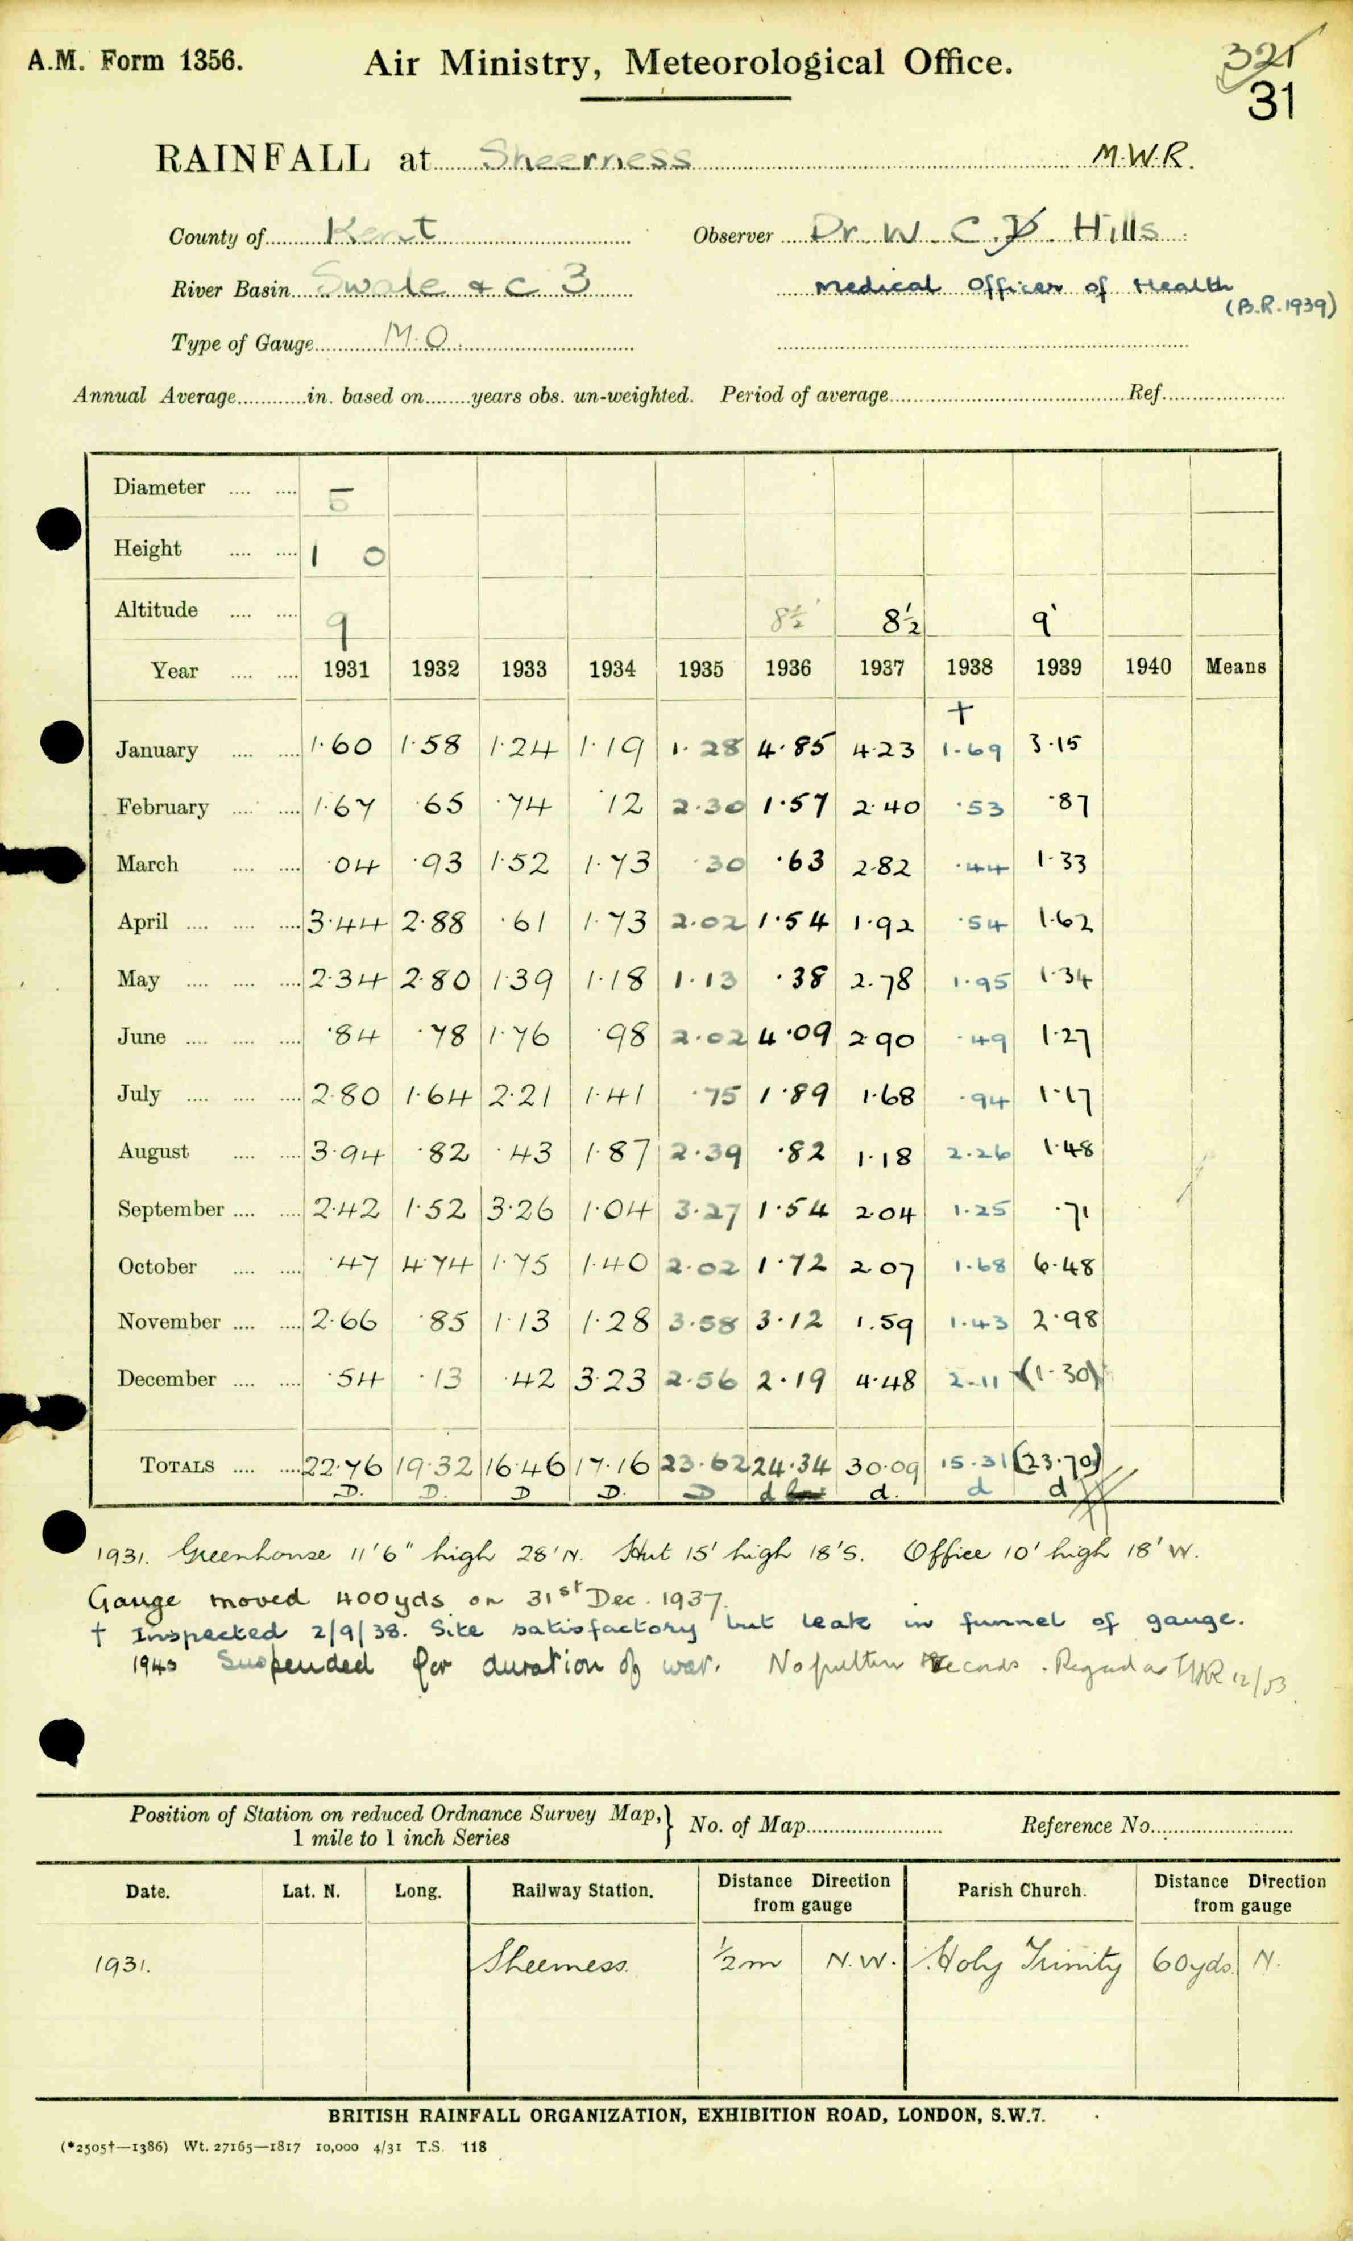 A.M. Form 1356. Air Ministry, Meteorological Office. 321
31
RAINFALL at Sheerness M.W.R.
County of Kent Observer Dr. W. C. D. Hills
River Basin Swale & C 3 Medical Officer of Health
(B.R. 1939)
Type of Gauge M.O.
Annual Average in. based on years obs. un-weighted. Period of average Ref.
Diameter 5
Height 1 0
Altitude 9 8½' 8½' 9'
Year 1931 1932 1933 1934 1935 1936 1937 1938 1939 1940 Means
†
January 1.60 1.58 1.24 1.19 1.28 4.85 4.23 1.69 3.15
February 1.67 .65 .74 .12 2.30 1.57 2.40 .53 .87
March .04 .93 1.52 1.73 .30 .63 2.82 .44 1.33
April 3.44 2.88 .61 1.73 2.02 1.54 1.92 .54 1.62
May 2.34 2.80 1.39 1.18 1.13 .38 2.78 1.95 1.34
June .84 .78 1.76 .98 2.02 4.09 2.90 .49 1.27
July 2.80 1.64 2.21 1.41 .75 1.89 1.68 .94 1.17
August 3.94 .82 .43 1.87 2.39 .82 1.18 2.26 1.48
September 2.42 1.52 3.26 1.04 3.27 1.54 2.04 1.25 .71
October .47 4.74 1.75 1.40 2.02 1.72 2.07 1.68 6.48
November 2.66 .85 1.13 1.28 3.58 3.12 1.59 1.43 2.98
December .54 .13 .42 3.23 2.56 2.19 4.48 2.11 (1.30)
TOTALS 22.76 19.32 16.46 17.16 23.62 24.34 30.09 15.31 (23.70)
D. D. D D. D d d. d d
1931. Greenhouse 11'6" high 28'N. Hut 15' high 18'S. Office 10' high 18'W.
Gauge moved 400yds on 31st Dec. 1937.
† Inspected 2/9/38. Site satisfactory but leak in funnel of gauge.
1940 Suspended for duration of war. No further records. Regard as 12/53
Position of Station on reduced Ordnance Survey Map,} No. of Map Reference No.
1 mile to 1 inch Series
Date. Lat. N. Long. Railway Station. Distance from gauge Direction Parish Church. Distance from gauge Direction
1931. Sheerness. ½m N.W. Holy Trinity 60yds. N.
BRITISH RAINFALL ORGANIZATION, EXHIBITION ROAD, LONDON, S.W.7.
(*2505†—1386) Wt. 27165—1817 10,000 4/31 T.S. 118